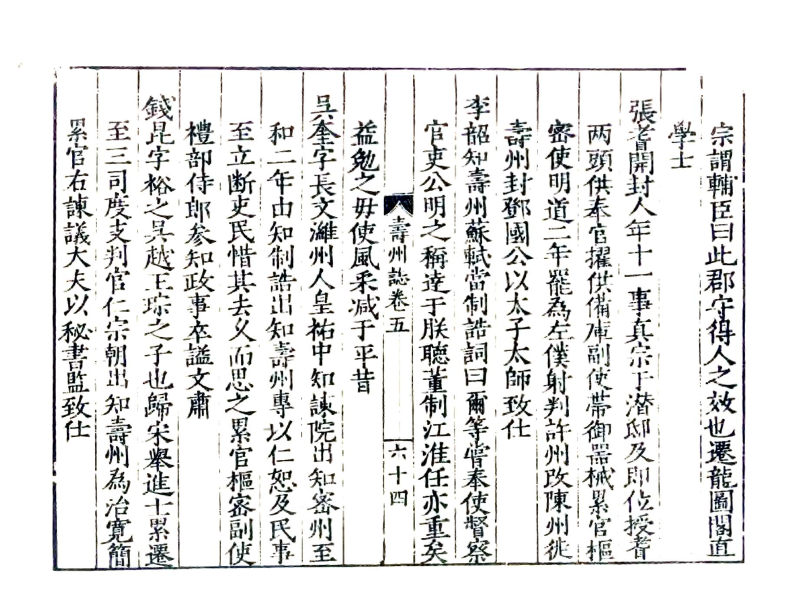 宗謂輔臣曰此郡守得人之效也遷龍圖閣直
學士
張耆開封人年十一事真宗于潛邸及即位授耆
两頭供奉官擢供備庫副使帶御噐械累官樞
宻使明道二年罷為左僕射判許州改陳州徙
壽州封鄧國公以太子太師致仕
李韶知壽州蘇軾當制誥詞曰爾等嘗奉使督察
官吏公明之稱達于朕聽董制江淮任亦重矣
益勉之毋使風采減于平昔
壽州誌卷五
六十四
吳奎字長文濰州人皇祐中知諫院出知密州至
和二年由知制誥出知壽州專以仁恕及民事
至立断吏民惜其去乆而思之累官樞宻副使
禮部侍郎參知政事卒謚文肅
錢昆字裕之吳越王琮之子也歸宋舉進士累遷
至三司度支判官仁宗朝出知壽州為治寬簡
累官右諫議大夫以秘書監致仕